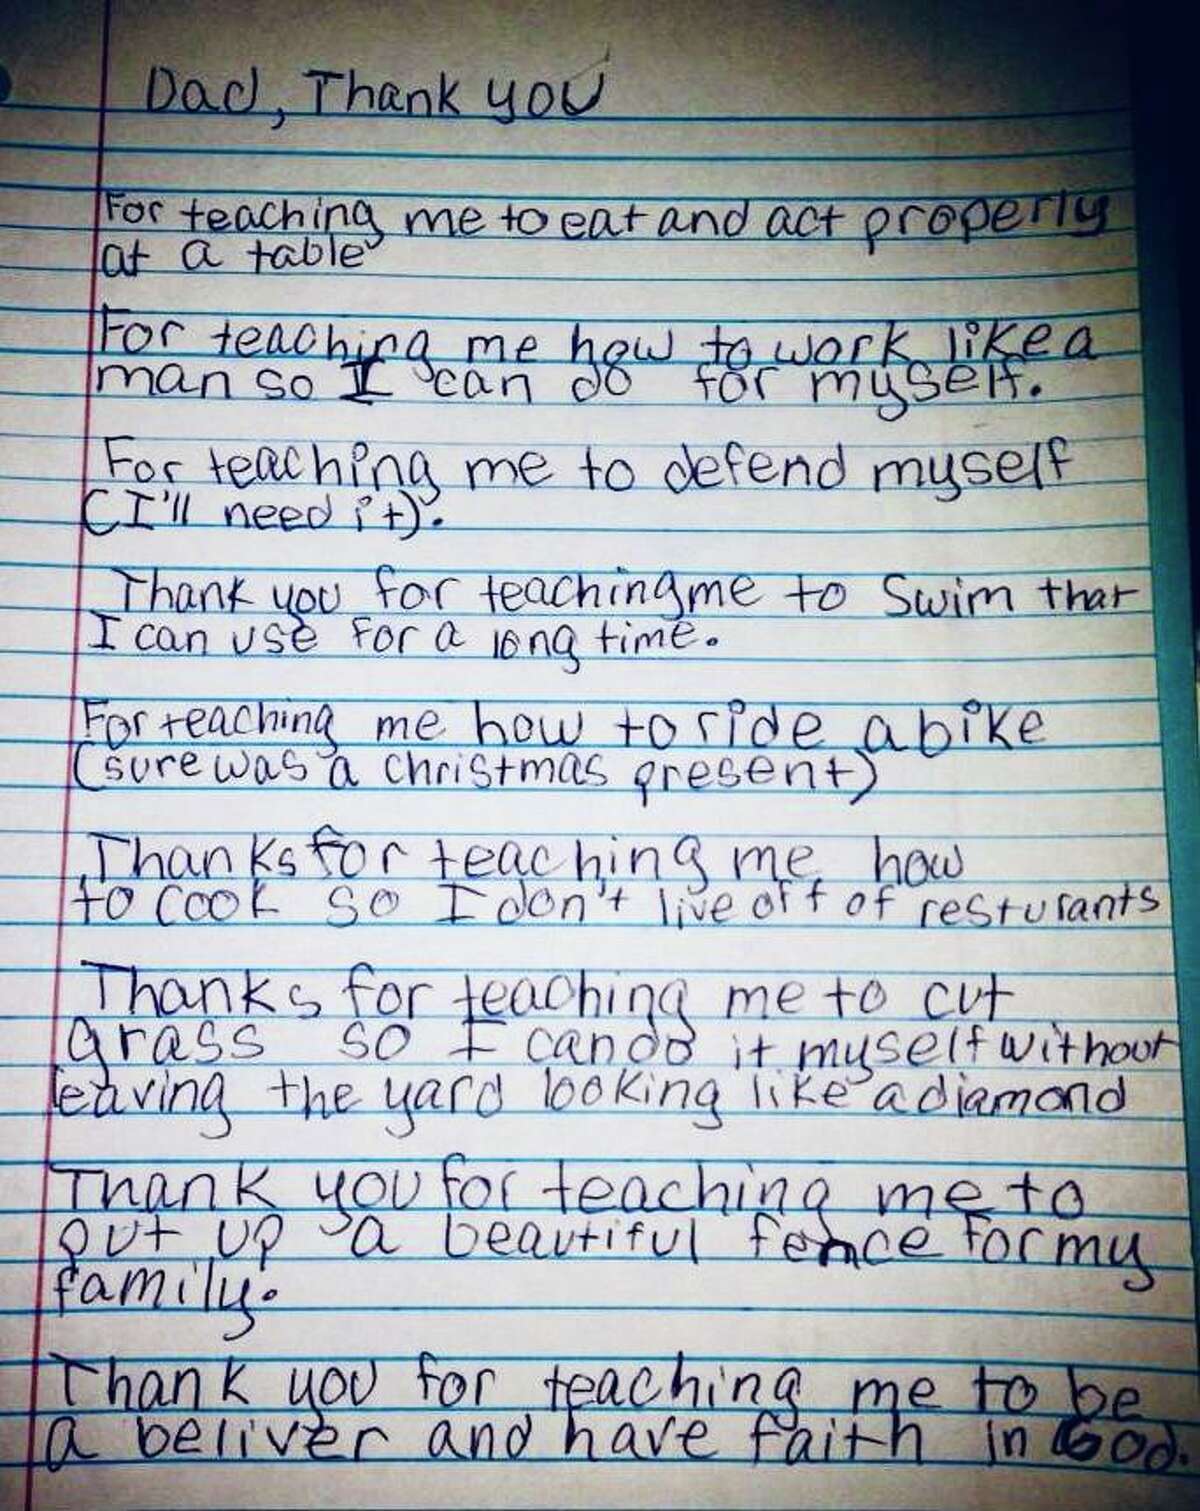 Dad, Thank you
For teaching me to eat and act properly
at a table
For teaching me how to work like a
man so I can do for myself.
For teaching me to defend myself
(I'll need it).
Thank you for teaching me to Swim that
I can use for a long time.
For teaching me how to ride a bike
(sure was a christmas present)
Thanks for teaching me how
to cook so I don't live off of resturants
Thanks for teaching me to cut
grass so I can do it myself without
leaving the yard looking like a diamond
Thank you for teaching me to
put up a beautiful fence for my
family.
Thank you for teaching me to be
a beliver and have faith in God.